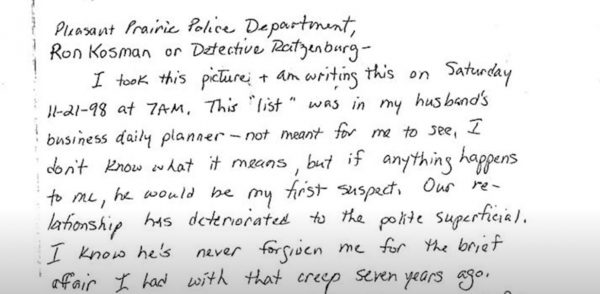 Pleasant Prairie Police Department,
Ron Kosman or Detective Ratzenburg-
I took this picture + am writing this on Saturday
11-21-98 at 7AM. This "list" was in my husband's
business daily planner - not meant for me to see, I
don't know what it means, but if anything happens
to me, he would be my first suspect. Our re-
lationship has deteriorated to the polite superficial.
I know he's never forgiven me for the brief
affair I had with that creep seven years ago.